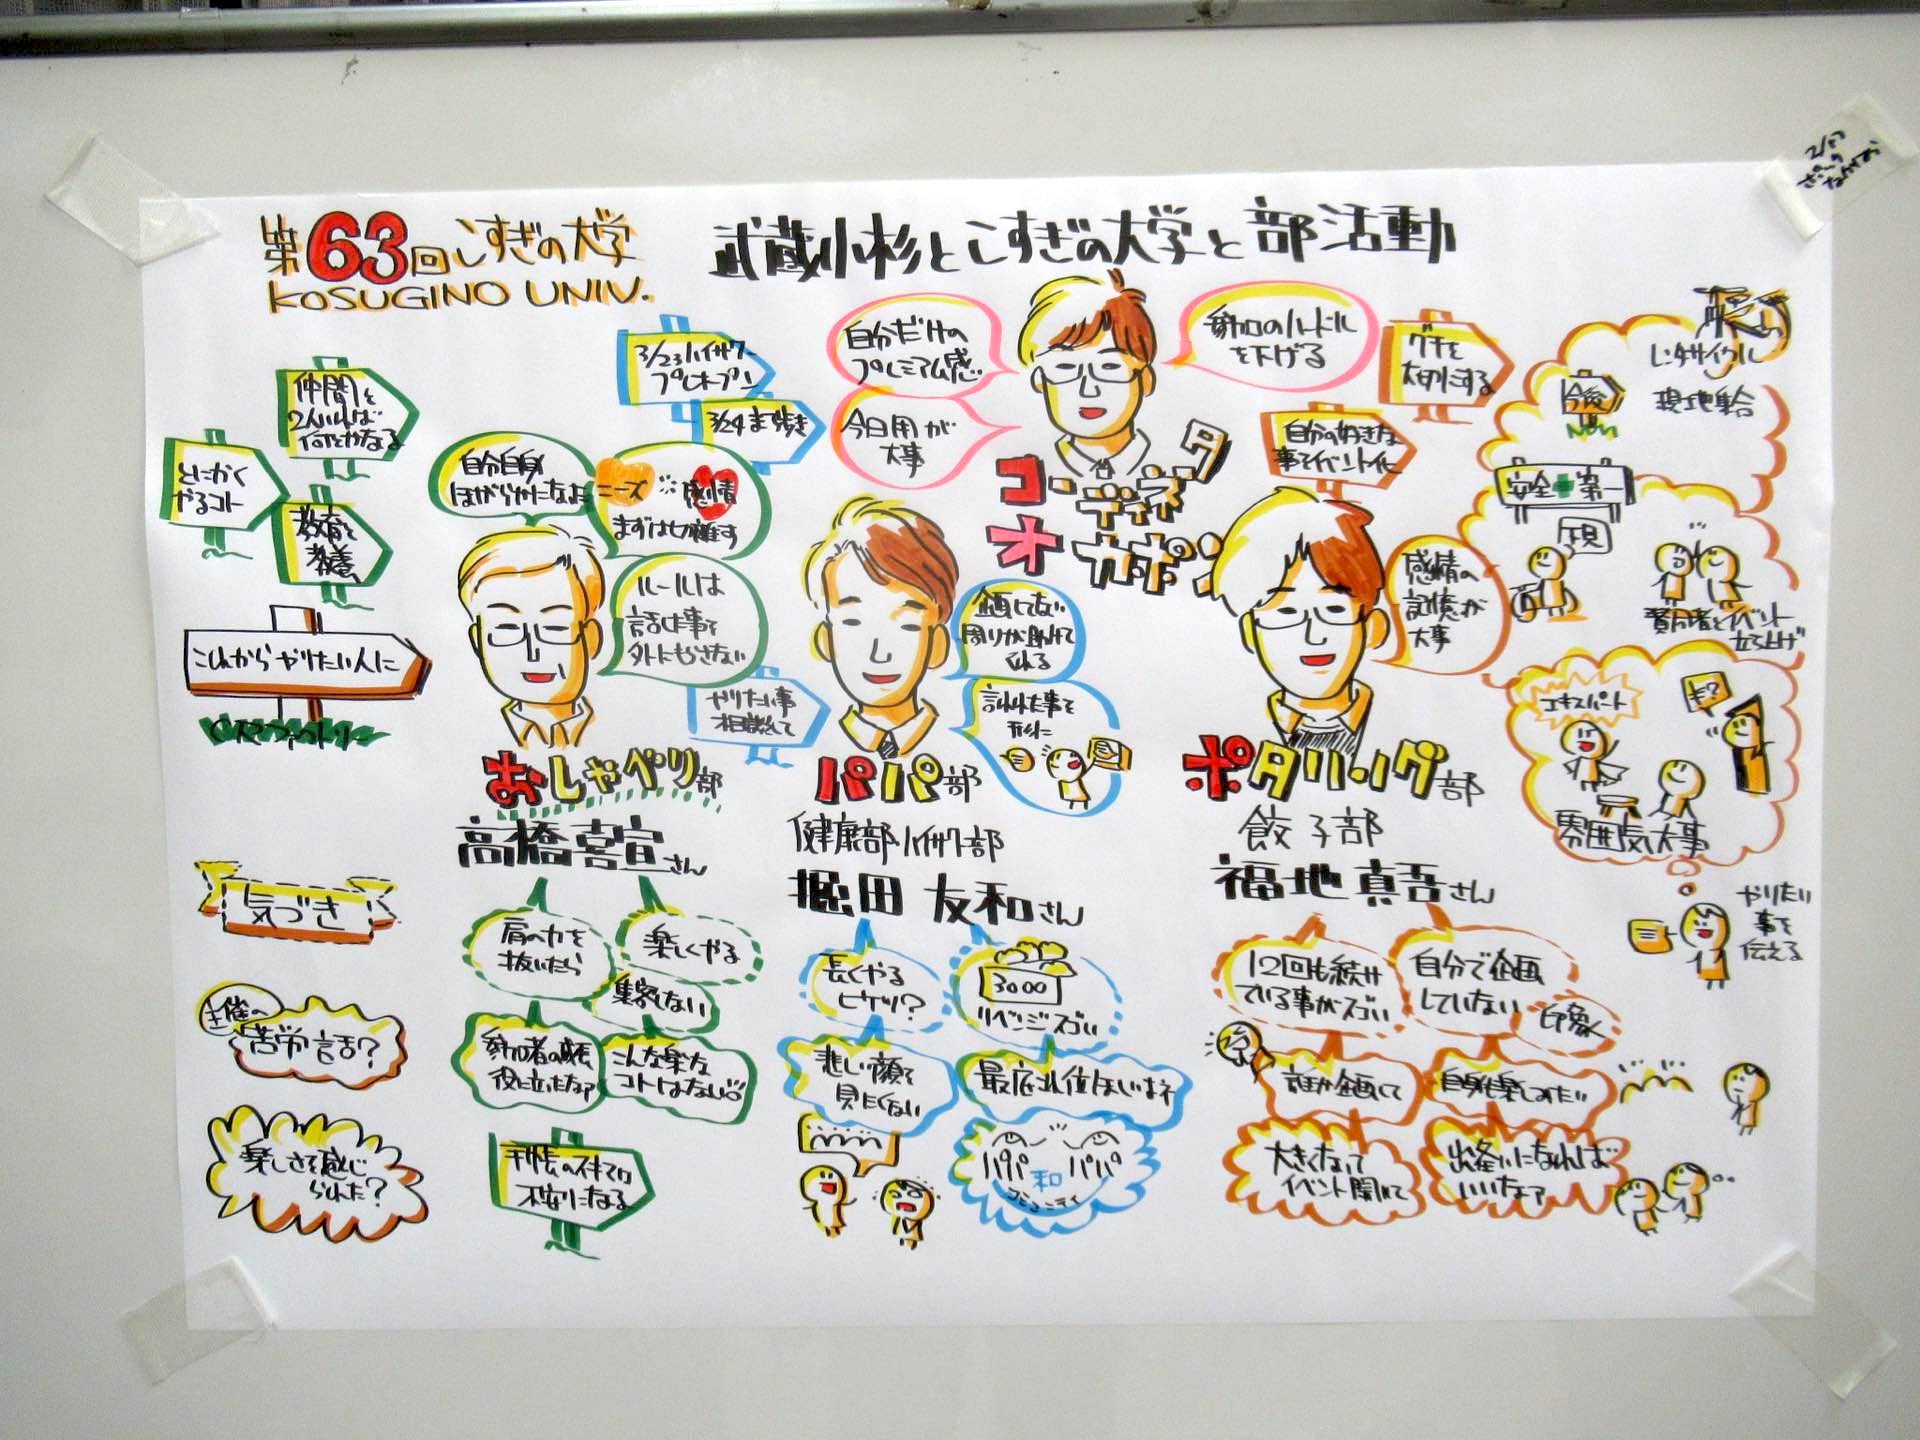 第63回こすぎの大学
KOSUGINO UNIV.
武蔵小杉とこすぎの大学と部活動
仲間を
2人いれば
何とかなる
とにかく
やるコト
教育と
教養
これからやりたい人に
気づき
主催の
苦労話?
楽しさを感じ
られた?
3/23ハイサワー
プレオープン
3/24まち歩き
自分自身
ほがらかになる
ニーズ
感情
まずは切離す
ルールは
話した事を
外にもらさない
おしゃべり部
高橋喜宣さん
肩の力を
抜いたら
楽しくやる
集客しない
役に立ったなァ
こんな楽な
コトはない
手帳のスキマは
不安になる
自分だけの
プレミアム感
今日用が
大事
参加のハードル
を下げる
コーディネータ
オカポン
やりたい事
相談して
周りが助けて
くれる
言われた事を
形に
パパ部
健康部 ハイサワー部
堀田 友和さん
長くやる
ヒケツ?
3000
リベンジスゴい
悲しい顔を
見たくない
パパ和パパ
コミュニティ
グチを
大切にする
自分の好きな
事をイベントに
感情の
記憶が
大事
ポタリング部
餃子部
福地真吾さん
12回も続け
ている事がスゴい
自分で企画
していない
印象
誰か企画して
自身も楽しみたい
大きくなって
イベント開いて
出逢いになれば
いいなァ
レンタサイクル
現地集合
今後
安全+第一
賛同者とイベント
立ち上げ
エキスパート
雰囲気大事
やりたい
事を
伝える